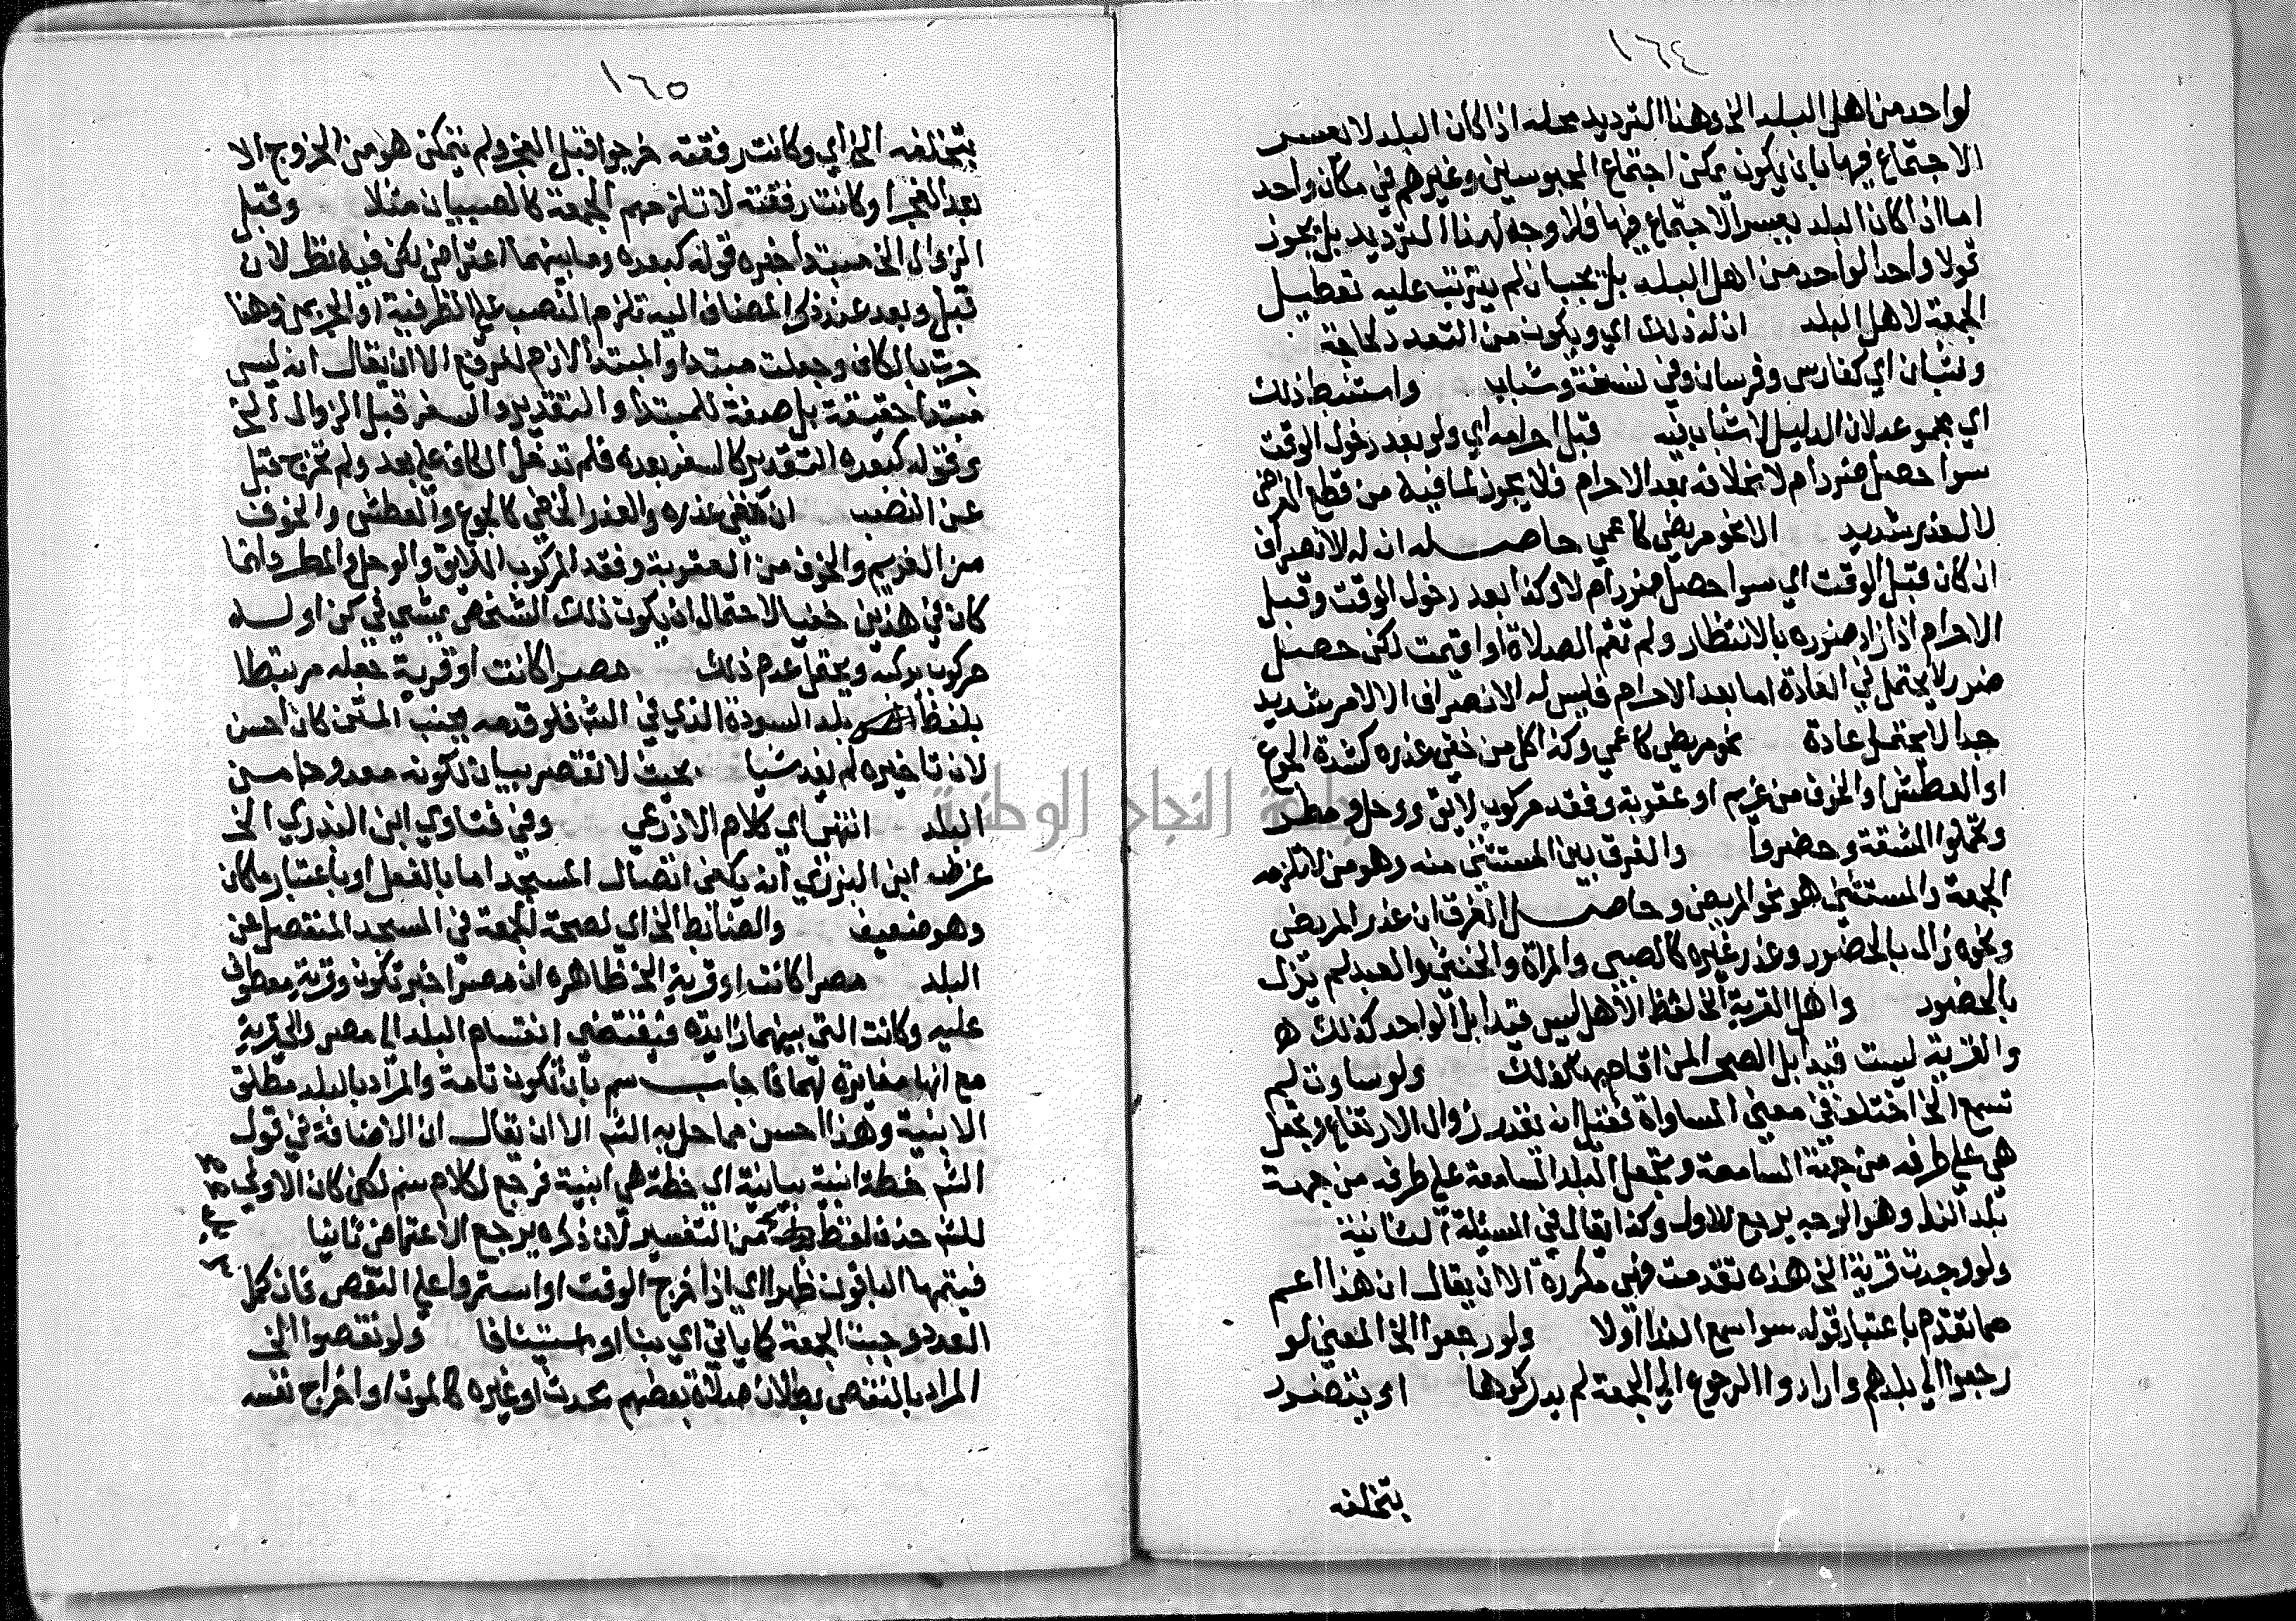 ١٦٤
لواحد من اهل البلد الخ وهذا الترديد محله اذا كان البلد لا يعسر
الاجتماع فيها بان يكون يمكن اجتماع المحبوسين وغيرهم في مكان واحد
اما اذا كان البلد يعسر الاجتماع فيها فلا وجه لهذا الترديد بل يجوز
قولا واحدا لواحد من اهل البلد بل يجب ان لم يترتب عليه تعطيل
الجمعة لاهل البلد ان له ذلك اي ويكون من التعدد لحاجة
وشبان اي كفارس وفرسان وفي نسخة وشباب واستنبط ذلك
اي مجموعه لان الدليل لا شباب فيه قبل احرامه اي ولو بعد دخول الوقت
سوا حصل ضرر ام لا بخلافه بعد الاحرام فلا يجوز لما فيه من قطع الفرض
لا لعذر شديد الا نحو مريض كاعمي حاصله ان له الانصراف
ان كان قبل الوقت اي سوا حصل ضرر ام لا وكذا بعد دخول الوقت وقبل
الاحرام اذا زاد ضرره بالانتظار ولم تقم الصلاة او اقيمت لكن حصل
ضرر لا يحتمل في العادة اما بعد الاحرام فليس له الانصراف الا لامر شديد
جدا لا يحتمل عادة نحو مريض كاعمي وكذا كل من خفي عذره كشدة الجوع
او العطش او الخوف من غريم او عقوبة وفقد مركوب لايق ووحل ومطر
وتحملوا المشقة وحضروا والفرق بين المستثني منه وهو من لا تلزمه
الجمعة والمستثني هو نحو المريض وحاصل الفرق ان عذر المريض
ونحوه زال بالحضور وعذر غيره كالصبي والمراة والخنثي والعبد لم يزل
بالحضور واهل القرية الخ لفظ الاهل ليس قيدا بل الواحد كذلك ه
والقرية ليست قيدا بل الصحرا لمن اقام بها كذلك ولو ساوت لم
تسمع الخ اختلف في معني المساواة فقيل انه يقدر زوال الارتفاع ويجعل
هي علي طرفه من جهة السامعة وتجعل البلد السامعة علي طرفه من جهة
بلد الندا وهو الوجه يرجع للاول وكذا يقال في المسئلة الثانية
ولو وجدت قرية الخ هذه تقدمت فهي مكررة الا ان يقال ان هذا اعم
مما تقدم باعتبار قوله سوا سمع الندا اولا ولو رجعوا الخ المعني لو
رجعوا الي بلدهم وارادوا الرجوع الي الجمعة لم يدركوها او يتضرر
بتخلفه
١٦٥
بتخلفه الخ اي وكانت رفقته خرجوا قبل الفجر ولم يتمكن هو من الخروج الا
بعد الفجر او كانت رفقته لا تلزمهم الجمعة كالصبيان مثلا وقبل
الزوال الخ مبتدا خبره قوله كبعده وما بينهما اعتراض لكن فيه نظر لان
قبل وبعد عند ذكر المضاف اليه تلزم النصب علي الظرفية او الجر بمن وهنا
جرت بالكاف وجعلت مبتدا والمبتدا لازم للرفع الا ان يقال انه ليس
مبتدا حقيقة بل صفة للمبتدا والتقدير والسفر قبل الزوال الخ
وقوله كبعده التقدير كالسفر بعده فلم تدخل الكاف علي بعد ولم تخرج قبل
عن النصب ان خفي عذره والعذر الخفي كالجوع والعطش والخوف
من الغريم والخوف من العقوبة وفقد المركوب اللايق والوحل والمطر وانما
كان في هذين خفيا لاحتمال ان يكون ذلك الشخص يمشي في كن او له
مركوب يركبه ويحتمل عدم ذلك مصرا كانت او قرية جعله مرتبطا
بلفظ بلد السودة الذي في الش فلو قدمه بجنب المتن كان احسن
لان تاخيره لم يفد شيا بحيث لا تقصر ببيان لكونه معدودا من
البلد انتهي اي كلام الاذرعي وفي فتاوي ابن البزري الخ
غرض ابن البزري انه يكفي اتصال المسجد اما بالفعل او باعتبار ما كان
وهو ضعيف والضابط الخ اي لصحة الجمعة في المسجد المنفصل عن
البلد مصرا كانت او قرية الخ ظاهره ان مصرا خبر تكون وقرية معطوف
عليه وكانت التي بينهما زايدة فيقتضي انقسام البلد الي مصر والي قرية
مع انها مغايرة لهما فاجاب سم بان تكون تامة والمراد بالبلد مطلق
الابنية وهذا احسن مما حل به الش الا ان يقال ان الاضافة في قول
الش خطة ابنية بيانية اي خطة هي ابنية فرجع لكلام سم لكن كان الاولي
للش حذف لفظ من التفسير لان ذكره يرجع الاعتراض ثانيا
فيتمها الباقون ظهرا اي اذا خرج الوقت او استمروا علي النقص فان كمل
العدد وجبت الجمعة كما ياتي اي بنا او استينافا ولو نقصوا الخ
المراد بالنقص بطلان صلاة بعضهم بحدث او غيره كالموت او اخراج نفسه
جامعة النجاح الوطنية